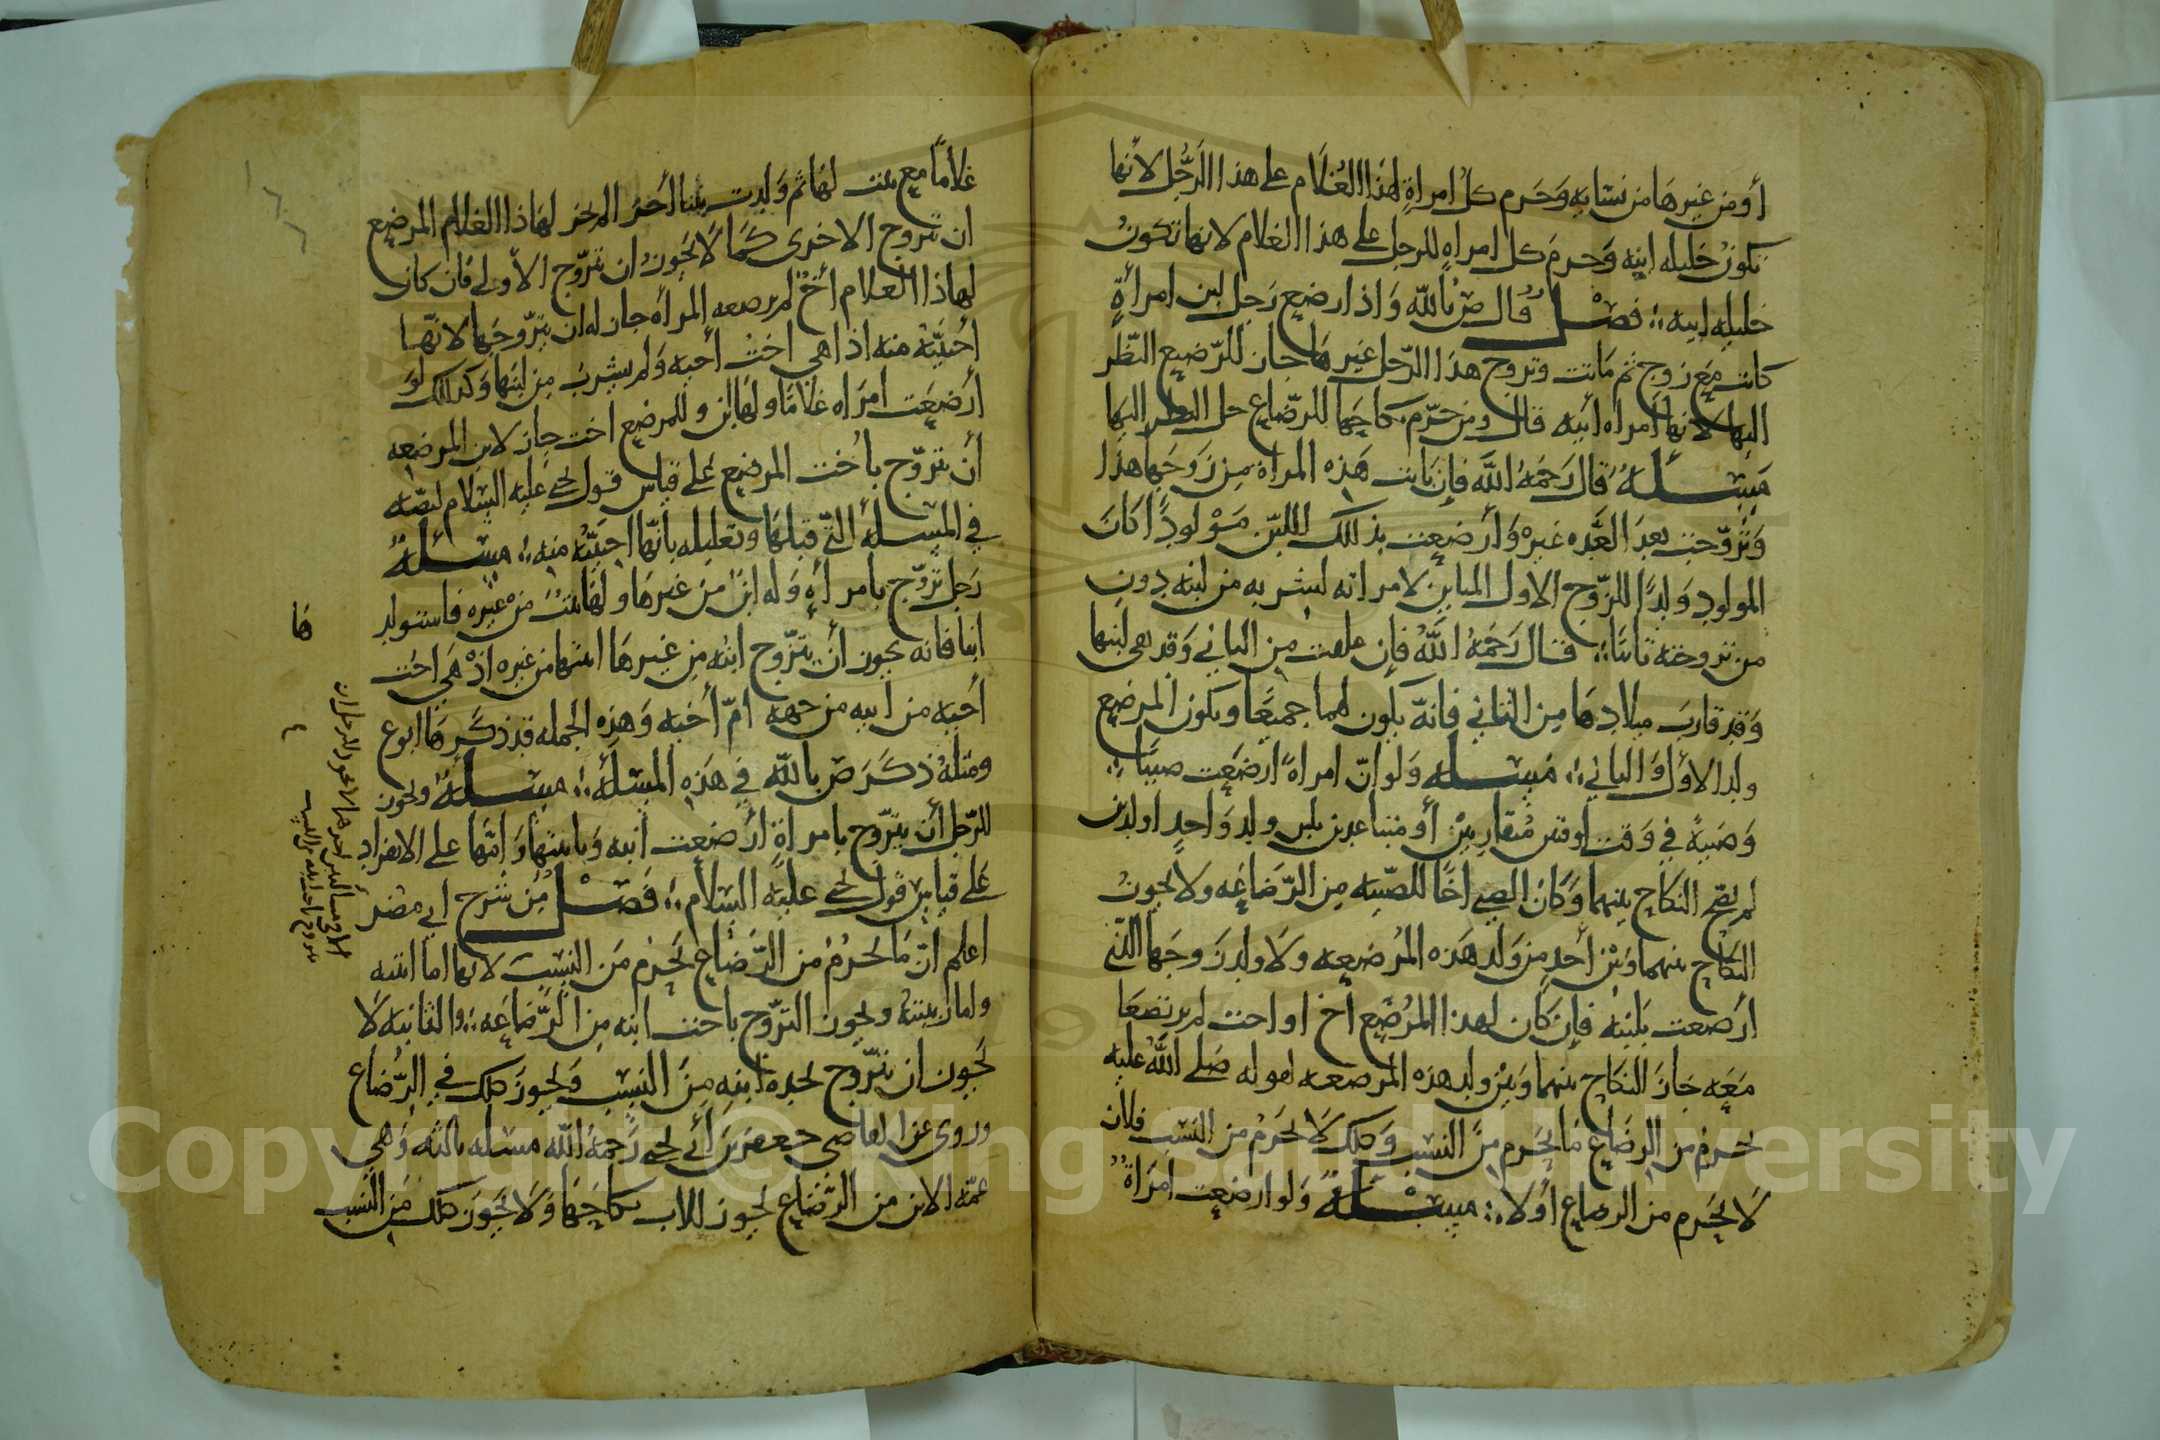 أو من غيرها من نسائه وحرم كل امراة لهذا الغلام على هذا الرجل لأنها
تكون حليله ابنه وحرم كل امراه للرجل على هذا الغلام لانها تكون
حليله ابيه ؛ فصل قال ص بالله واذا ارضع رجل لبن امرأة
كانت مع زوج ثم ماتت وتزوج هذا الرجل غيرها جاز للرضيع النظر
اليها لانها امراه أبيه قال ومن حرم نكاحها للرضاع حل النظر اليها
مسئلة قال رحمه الله فإن بانت هذه المراة من زوجها هذا
وتزوجت بعد العده غيره وأرضعت بذلك اللبن مولودا كان
المولود ولدا للزوج الاول المباين لامراته لشربه من لبنه دون
من تزوجته ثانيا ؛ قال رحمه الله فإن علقت من الثاني وقد بقي لبنها
وقد قارب ميلادها من الثاني فانه يكون لهما جميعا ويكون المرضع
ولد الأول والثاني ؛ مسئله ولو انّ امراة ارضعت صبيا
وصبية في وقت او وقتين متقاربين أو متباعدين بلبن ولد واحد او ولدين
لم يصح النكاح بينهما وكان الصبي اخا للصبيه من الرضاعه ولا يجوز
النكاح بينهما وبين أحد من ولد هذه المرضعه ولا ولد زوجها التي
أرضعت بلبنه فإن كان لهذا المرضع أخ او اخت لم يرتضعا
معه جاز النكاح بينهما وبين ولد هذه المرضعه لقوله صلى الله عليه
يحرم من الرضاع ما يحرم من النسب وذلك لا يحرم من النسب فلان
لا يحرم من الرضاع أولا ؛ مسئلة ولو ارضعت امراة
غلاما مع بنت لها ثم ولدت بنتا أخرى لم يجز لهذا الغلام المرضع
ان تزوج الاخرى كما لا يجوز ان يتزوج الأولى فان كان
لهذا الغلام أخ لم ترضعه المرأه جاز له ان يتزوجها لانها
أجنبيّة منه اذ هي اخت أخيه ولم يشرب من لبنها وكذلك لو
أرضعت امراه غلاما ولها ابن وللمرضع اخت جاز لابن المرضعه
أن يتزوج بأخت المرضع على قياس قول يحيى عليه السلام لنصّه
في المسئلة التي قبلها وتعليله بانها اجنبيّه منه ؛ مسئلة
رجل تزوج بامرأة وله ابن من غيرها ولها بنت من غيره فاستولد
ابنا فانه يجوز أن يتزوج ابنه من غيرها ابنتها من غيره اذ هي اخت
أخيه من ابيه من جهه امّ أخيه وهذه الجمله قد ذكرها ابو ع
ومثله ذكر ص بالله في هذه المسئلة ؛ مسئلة ويجوز
للرّجل أن يتزوج بامراة أرضعت ابنه وبابنتها وامّها على الانفراد
على قياس قول يحيى عليه السلام ؛ فصل من شرح ابي مضر
اعلم انّ ما يحرم من الرضاع يحرم من النسب لانها اما ابنته
واما ربيبته ويجوز التزوج باخت ابنه من الرضاعه ؛ والثانيه لا
يجوز ان يتزوج بجده ابنه من النسب ويجوز ذلك في الرّضاع
وروي عن القاضي جعفر بن أبي يحيى رحمه الله مسئله ثالثه وهي
عمّة الابن من الرضاع يجوز للاب نكاحها ولا يجوز ذلك من النسب